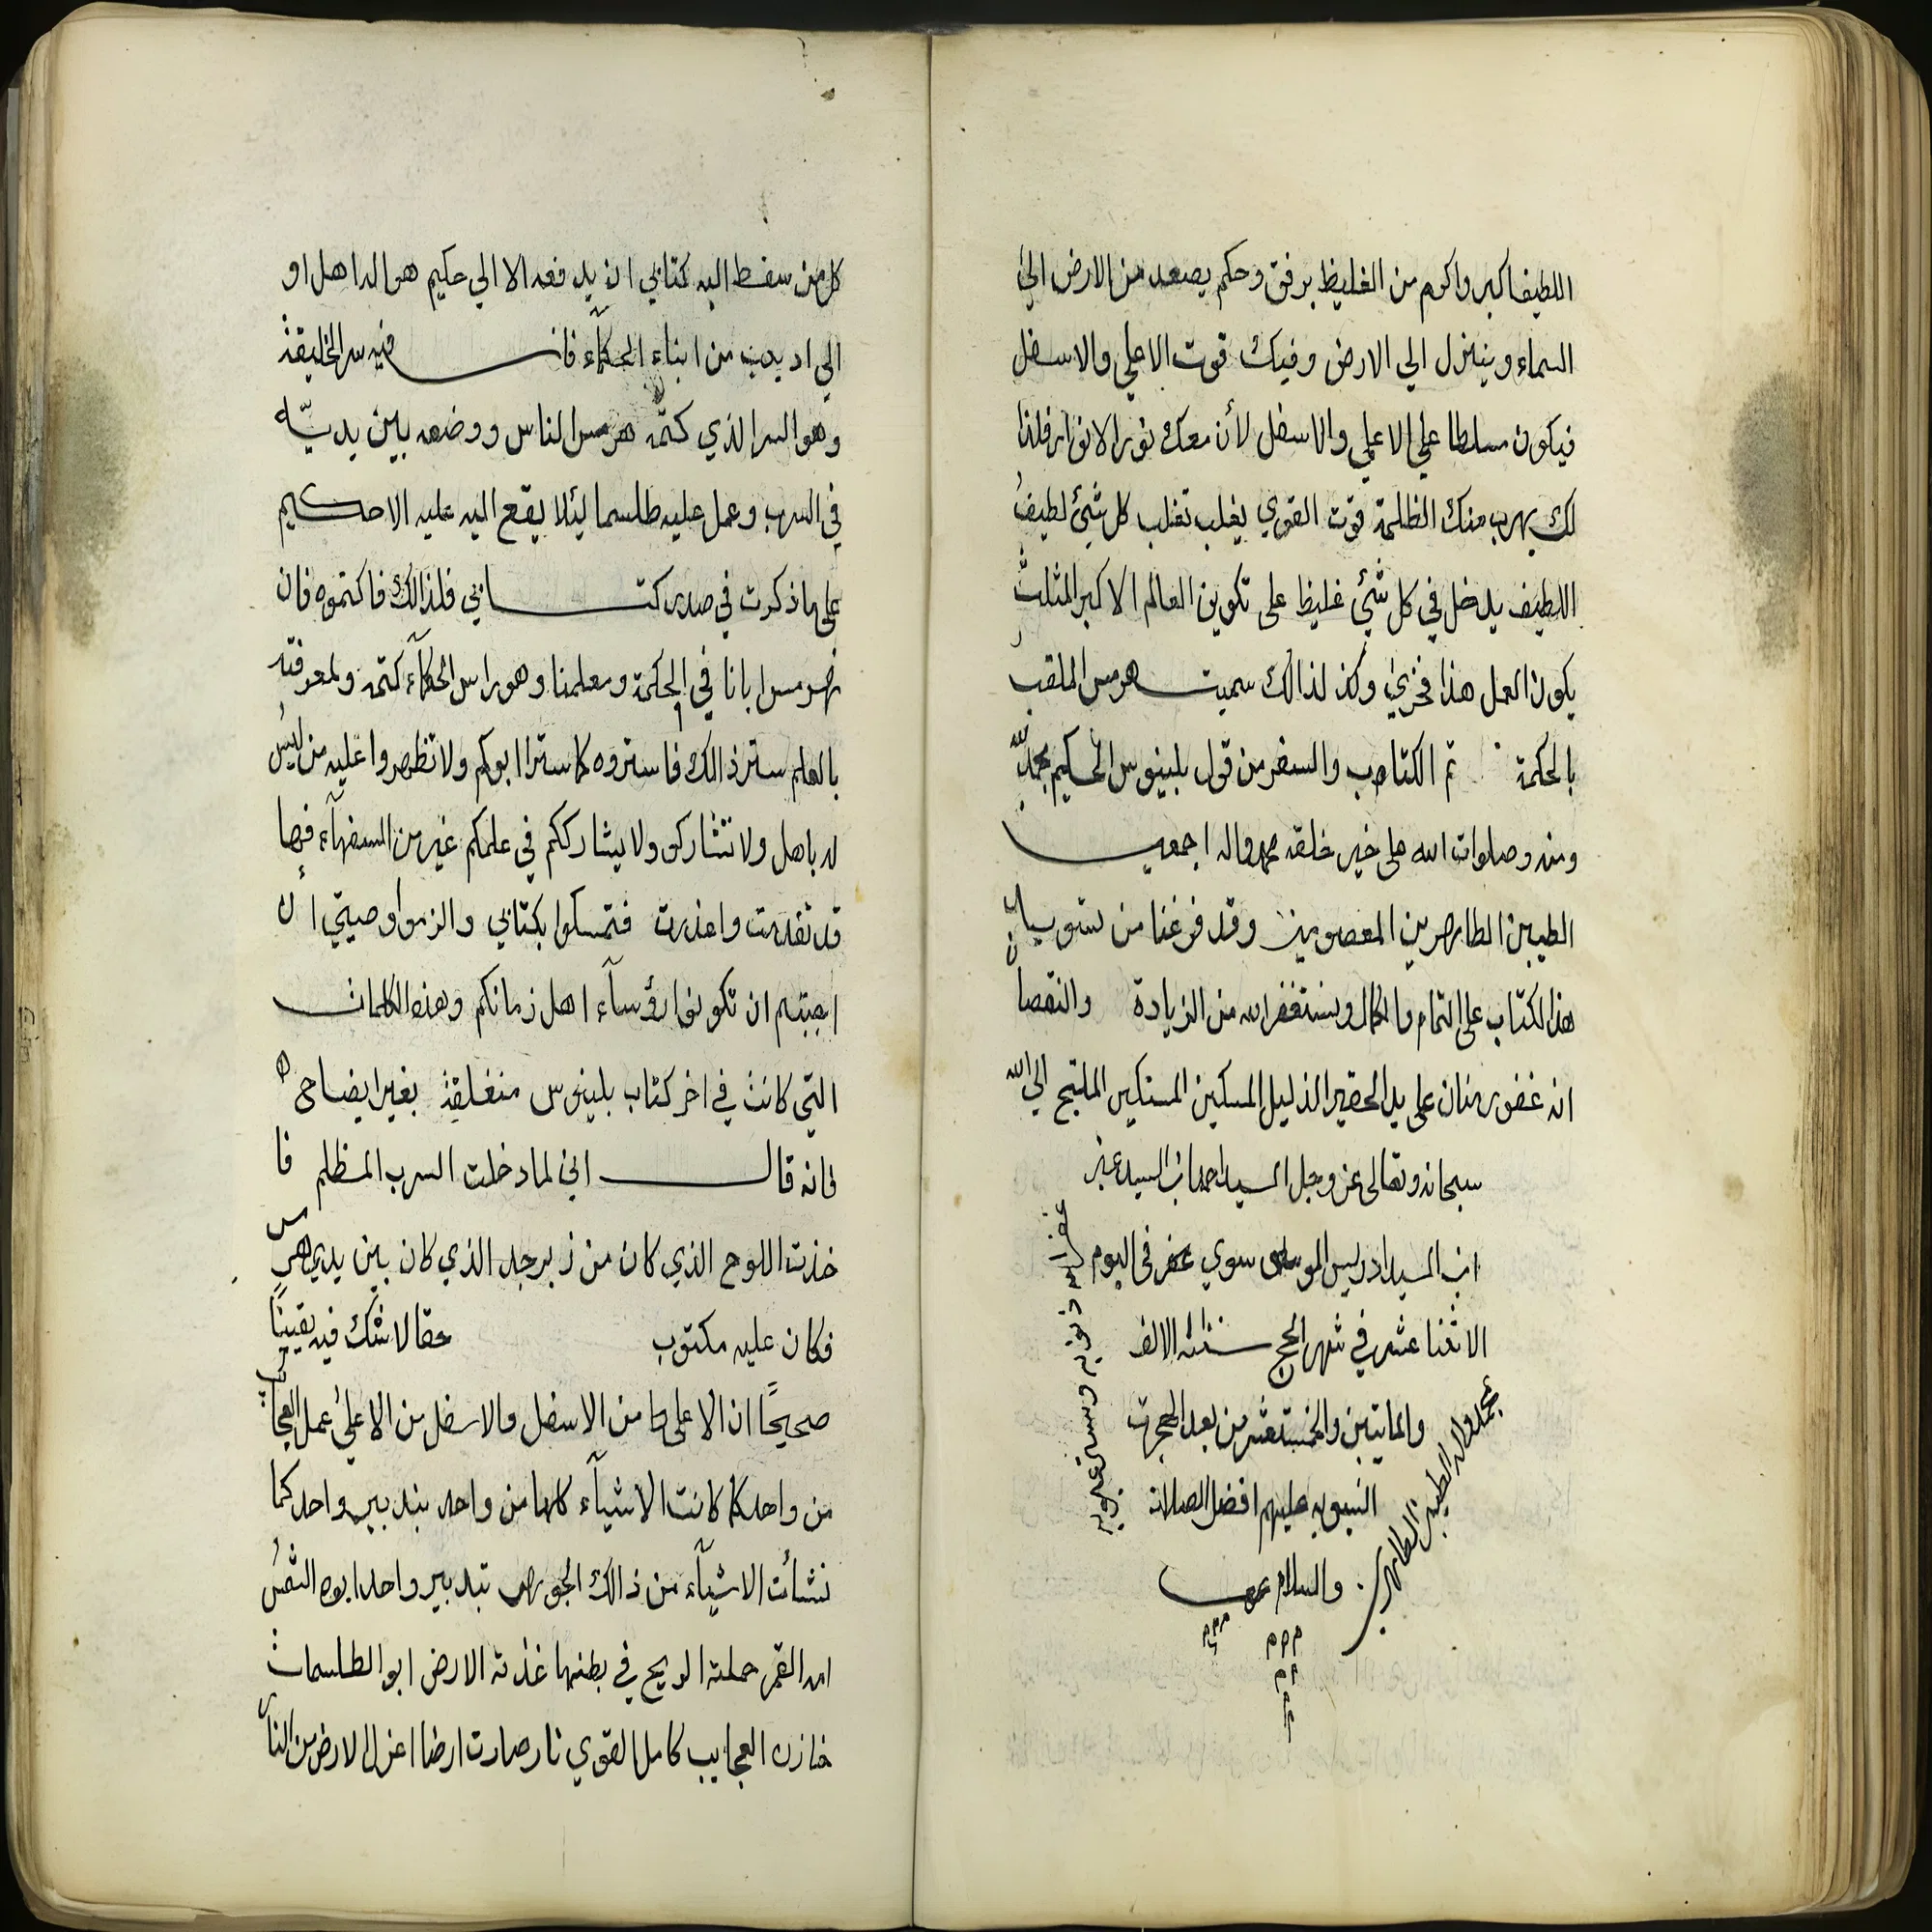 كل من سقط اليه كتابي ان يدفعه الا الي حكيم هو له اهل او
الي اديب من ابناء الحكمآء فان فيه سر الخليقة
وهو السر الذي كتمه هرمس الناس ووضعه بين يديّه
في السرب وعمل عليه طلسما ليئلا يقع اليه عليه الا حكيم
على ما ذكرت في صدر كتابي فلذالك فاكتموه فان
هرمس ابانا في الحكمة ومعلمنا وهو راس الحكمآء كتمه ولمعرفته
بالعلم ستر ذالك فاستروه كما سترا ابوكم ولا تظهروا عليه من ليس
له باهل ولا تتشاركو ولا يشارككم في علمكم غير من السفهآء فيها
قد تقدمت واعذرت فتمسكوا بكتابي والزموا وصيتي ان
احببتم ان تكونوا رؤسآء اهل زمانكم وهذه الكلمات
التي كانت في اخر كتاب بلينوس منغلقة بغير ايضاح
فانه قال اني لما دخلت السرب المظلم فا
خذت اللوح الذي كان من زبرجد الذي كان بين يدي هرمس
فكان عليه مكتوب حقا لا شك فيه يقينًا
صحيحًا ان الاعلى ما من الاسفل والاسفل من الاعلى عمل العجايب
من واحد كما كانت الاشيآء كلها من واحد بتدبير واحد كما
نشأت الاشيآء من ذالك الجوهر بتدبير واحد ابوه الشمس
امه القمر حملته الريح في بطنها غذته الارض ابو الطلسمات
خازن العجايب كامل القوي نار صارت ارضا اعزل الارض من النار
اللطيف اكبر واكرم من الغليظ برفق وحكم يصعد من الارض الى
السماء وينزل الي الارض وفيك قوت الاعلي والاسفل
فيكون مسلطا علي الاعلي والاسفل لأن معك نور الانوار فلذا
لك يهرب منك الظلمة قوت القوي يغلب تغلب كل شئ لطيف
اللطيف يدخل في كل شئ غليظ على تكوين العالم الاكبر المثلث
يكون العمل هذا فخري وكذ لذالك سميت هرمس الملقب
بالحكمة تم الكتاب والسفر من قول بلينوس الحكيم بحمد الله
ومنه وصلوات الله على خير خلقه محمد واله اجمعين
الطيبين الطاهرين المعصومين وقد فرغنا من تسويد
هذا لكتاب على التمام والكمال ونستغفر الله من الزيادة والنقصان
انه غفور منان على يد الحقير الذليل المسكين المستكين الملتجي الي الله
سبحانه وتعالى عز وجل السيد احمد ابن السيد
ابن السيد ادريس الموسوي في اليوم
الاثنا عشر في شهر الحج سنة الالف
والماتين والخمستعشر من بعد الهجرت
النبويه عليهم افضل الصلات
والسلام
بمحمد واله الطيبين الطاهرين
غفر الله ذنوبه وستر عيوبه